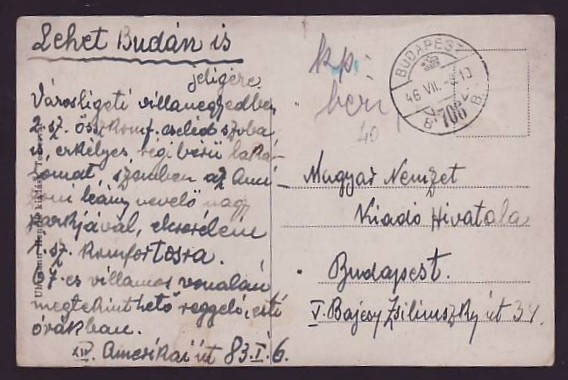 Lehet Budán is
jeligére
Városligeti villanegyedben
2 sz. összkomf. cseléd szoba
is, erkélyes, régi bérű laká-
somat, szemben az Ama
leány nevelő nagy
parkjával, elcserélem
1 sz. komfortosra.
67-es villamos vonalán
megtekinthető reggeli, esti
órákban.
XIV. Amerikai út 83. I. 6.
kp.
béri
40
BUDAPEST
46 VII.
708
B.
Magyar Nemzet
Kiadó Hivatala
Budapest.
V. Bajcsy Zsilinszky út 34.